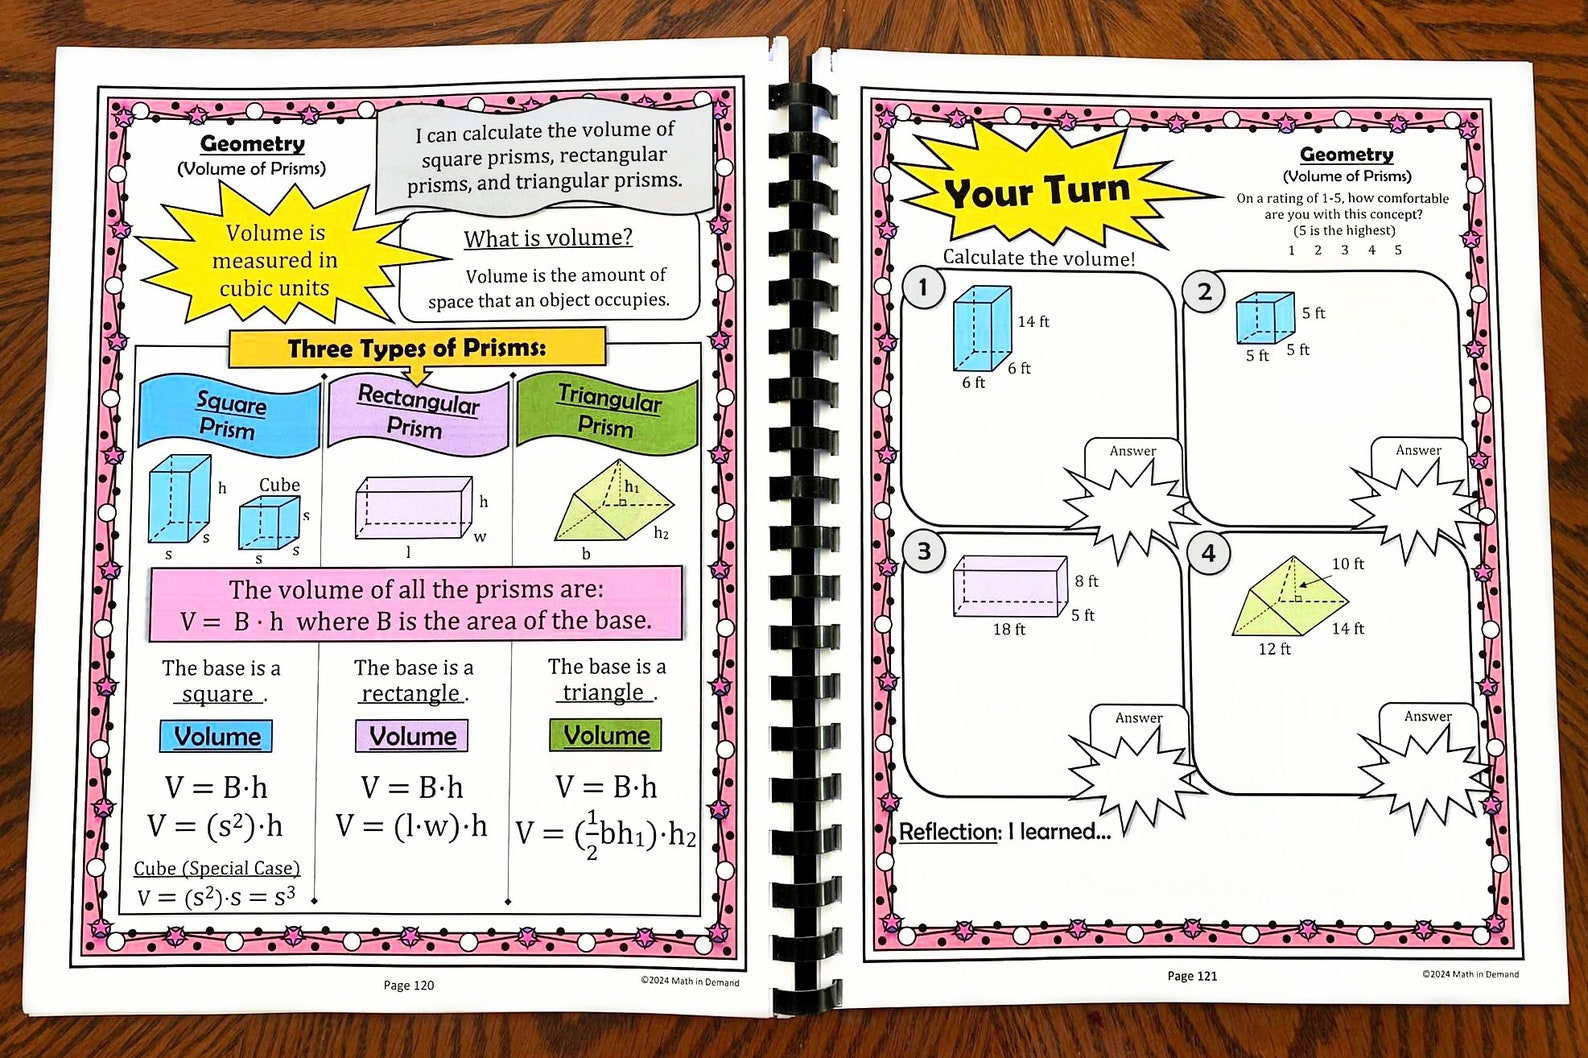 Geometry
(Volume of Prisms)
I can calculate the volume of
square prisms, rectangular
prisms, and triangular prisms.
Volume is
measured in
cubic units
What is volume?
Volume is the amount of
space that an object occupies.
Three Types of Prisms:
Square
Prism
Rectangular
Prism
Triangular
Prism
h
s
s
Cube
s
s
s
h
w
l
h₁
h₂
b
The volume of all the prisms are:
V = B · h where B is the area of the base.
The base is a
square .
The base is a
rectangle .
The base is a
triangle .
Volume
Volume
Volume
V = B·h
V = (s²)·h
Cube (Special Case)
V = (s²)·s = s³
V = B·h
V = (l·w)·h
V = B·h
V = (1/2bh₁)·h₂
Page 120
©2024 Math in Demand
Your Turn
Geometry
(Volume of Prisms)
On a rating of 1-5, how comfortable
are you with this concept?
(5 is the highest)
1 2 3 4 5
Calculate the volume!
1
14 ft
6 ft
6 ft
Answer
2
5 ft
5 ft
5 ft
Answer
3
8 ft
5 ft
18 ft
Answer
4
10 ft
14 ft
12 ft
Answer
Reflection: I learned...
Page 121
©2024 Math in Demand